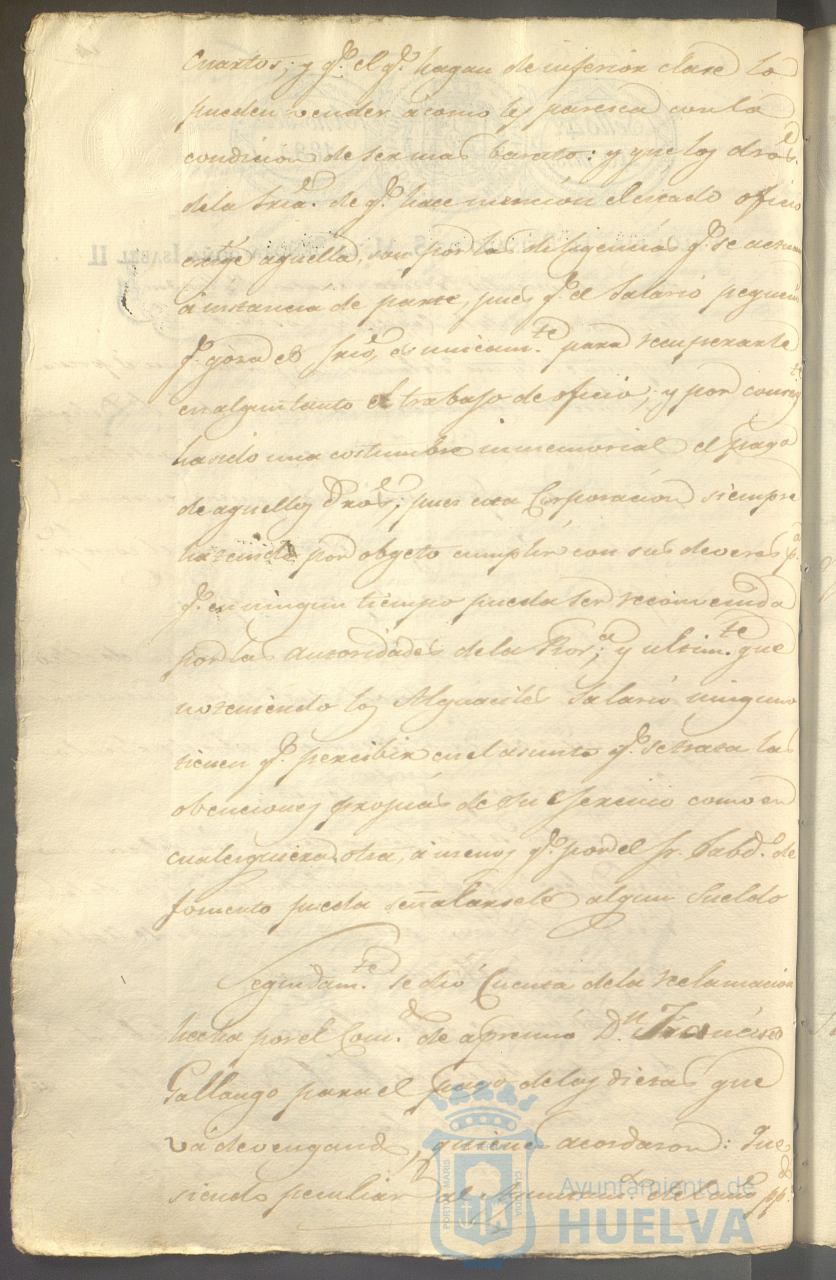 Cuartos; y q.e el q.e hagan de inferior clase lo
pueden vender á como les paresca con la
condicion de ser mas barato: y que los dros.
de la Sria. de q.e hace mencion el citado oficio
exige aquella, son por las diligencias q.e se actuan
á instancia de parte, pues q.e el Salario pequeño
q.e goza el Srio, es unicam.te para recuperarle
en algun tanto el trabajo de oficio; y por
ha sido una costumbre inmemorial el pago
de aquellos dros; pues esta Corporacion siempre
ha tenido por objeto cumplir con sus deveres p.a
q.e en ningun tiempo pueda ser reconvenida
por las autoridades de la Prov.a; y ultim.te que
no teniendo los Alguaciles Salario ninguno
tienen q.e percibir en el asunto q.e se trata las
obenciones propias de su exercicio como en
cualesquiera otra, á menos q.e por el Sr. Sabd.o de
fomento pueda señalarsele algun Sueldo
Seguidam.te se dió Cuenta de la reclamacion
hecha por el Com.do de apremio D.n Francisco
Gallango para el pago de las dietas que
vá devengand, quienes acordaron: Que
siendo peculiar al Ayuntam.to de
SELLO 4º
ISABEL II
PORTUS MARIS
CUSTODIA
Ayuntamiento de
HUELVA